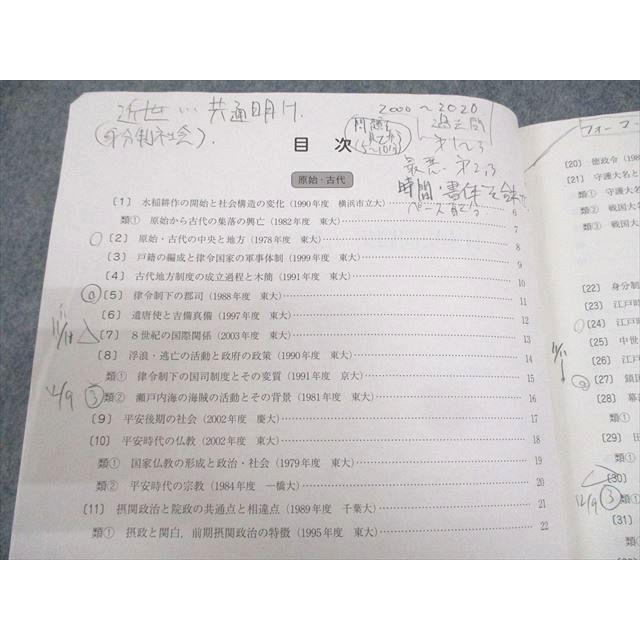 近世…共通明け.
(身分制社会).
2000〜2020
過去問
目 次
原始・古代
〔1〕 水稲耕作の開始と社会構造の変化(1990年度 横浜市立大) 6
類① 原始から古代の集落の興亡(1982年度 東大) 7
〔2〕 原始・古代の中央と地方(1978年度 東大) 8
〔3〕 戸籍の編成と律令国家の軍事体制(1999年度 東大) 9
〔4〕 古代地方制度の成立過程と木簡(1991年度 東大) 10
〔5〕 律令制下の郡司(1988年度 東大) 11
〔6〕 遣唐使と吉備真備(1997年度 東大) 12
11/18
〔7〕 8世紀の国際関係(2003年度 東大) 13
〔8〕 浮浪・逃亡の活動と政府の政策(1990年度 東大) 14
類① 律令制下の国司制度とその変質(1991年度 京大) 15
12/9 ③ 類② 瀬戸内海の海賊の活動とその背景(1981年度 東大) 16
〔9〕 平安後期の社会(2002年度 慶大) 17
〔10〕 平安時代の仏教(2002年度 東大) 18
類① 国家仏教の形成と政治・社会(1979年度 東大) 19
類② 平安時代の宗教(1984年度 一橋大) 20
〔11〕 摂関政治と院政の共通点と相違点(1989年度 千葉大) 21
類① 摂政と関白,前期摂関政治の特徴(1995年度 東大) 22
〔20〕 徳政令(19
〔21〕 守護大名と
類① 守護大名
類② 戦国大名
類③ 戦国大
〔22〕 身分制
〔23〕 江戸時
〔24〕 江戸時
〔25〕 中世
〔26〕 江戸
〔27〕 鎖国
〔28〕 幕
類①
〔29〕
類①
〔30〕
12/9 ③ 類①
〔31〕